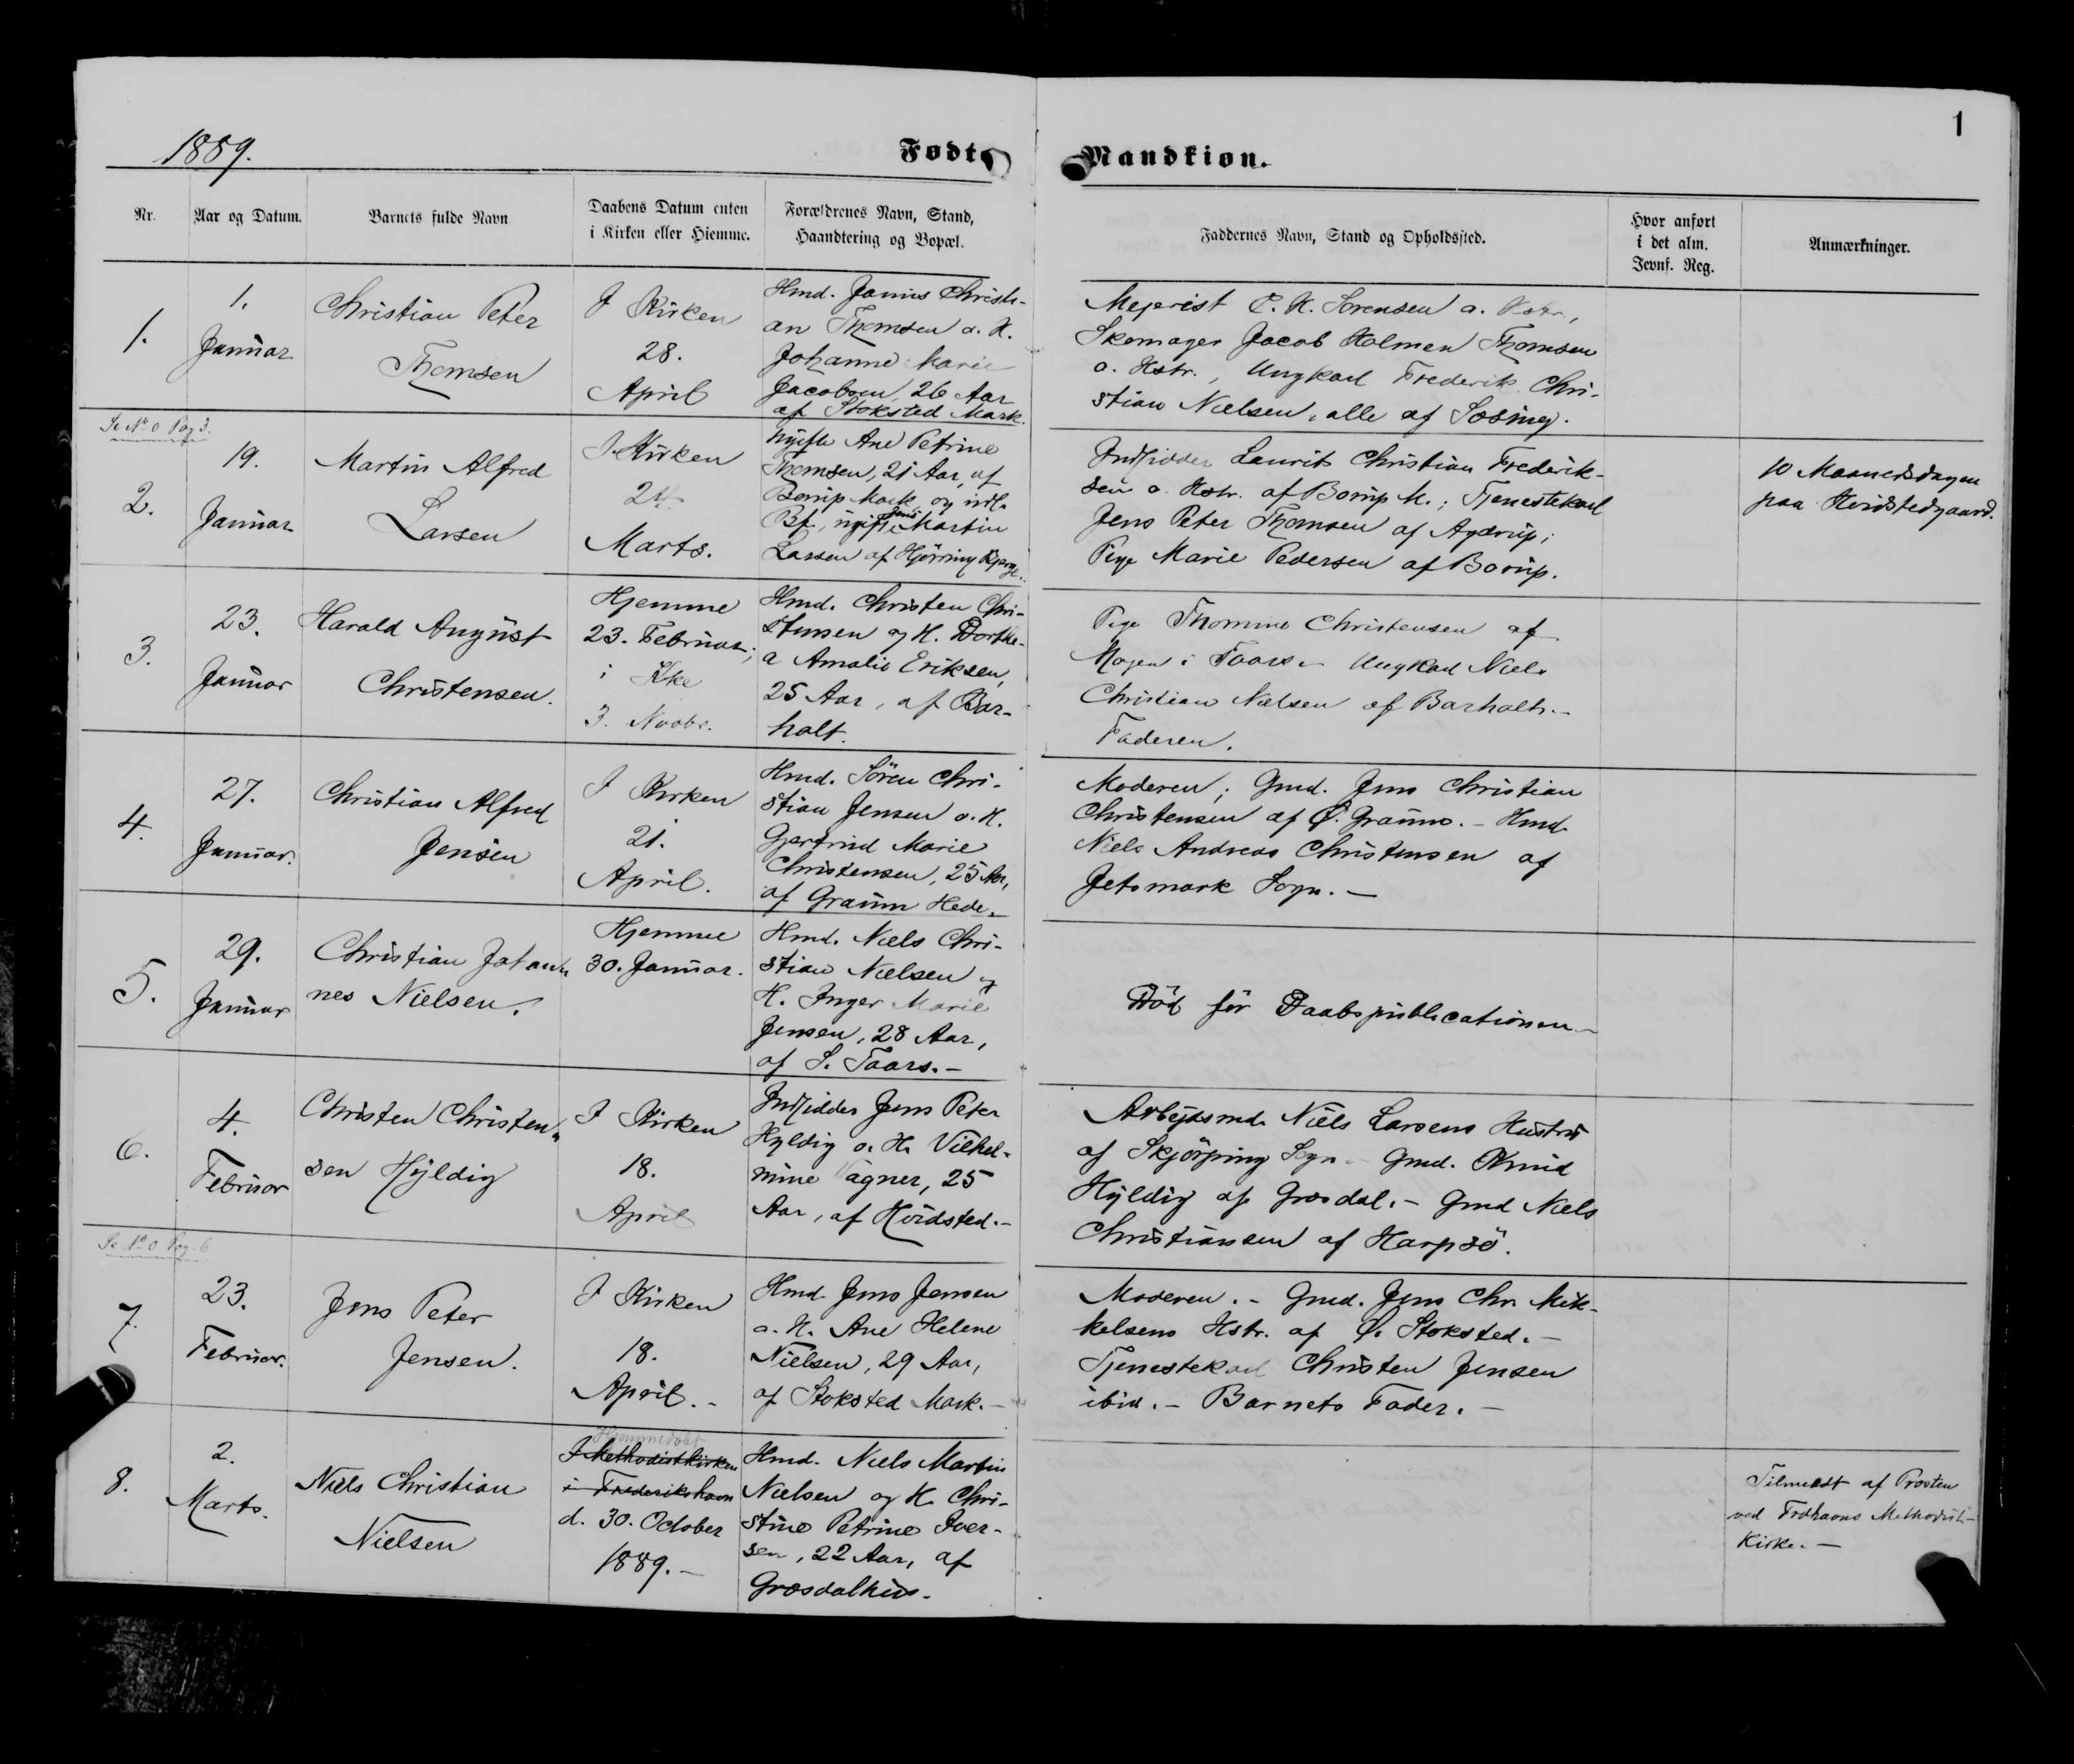 1
1889.
Født Mandkiøn.
Nr.
Aar og Datum.
Barnets fulde Navn
Daabens Datum enten
i Kirken eller Hiemme.
Forældrenes Navn, Stand,
Haandtering og Bopæl.
Faddernes Navn, Stand og Opholdssted.
Hvor anført
i det alm.
Jevnf. Reg.
Anmærkninger.
1.
1.
Januar
Christian Peter
Thomsen
I Kirken
28.
April
Hmd. Janus Christi-
an Thomsen o. H.
Johanne Marie
Jacobsen, 26 Aar
af Stoksted Mark.
Mejerist C. K. Sørensen o. Hstr.,
Skomager Jacob Holmen Thomsen
o. Hstr., Ungkarl Frederik Chri-
stian Nielsen, alle af Sæsing.
Se No 0 Pag 3.
2.
19.
Januar
Martin Alfred
Larsen
I Kirken
24.
Marts.
Ugifte Ane Petrine
Thomsen, 21 Aar, af
Borup Mark og udl.
Bf., ugift Jens Martin
Larsen af Hjørring Bjerge.
Indsidder Laurits Christian Frederik-
sen o. Hstr. af Borup M.; Tjenestekarl
Jens Peter Thomsen af Agdrup;
Pige Marie Pedersen af Borup.
10 Maanedsdagen
paa Hvidstedgaard.
3.
23.
Januar
Harald August
Christensen.
Hjemme
23. Februar;
i Kke
3. Novbr.
Hmd. Christen Chri-
stensen og H. Dorthe-
a Amalie Eriksen,
25 Aar, af Bar-
holt.
Pige Thomine Christensen af
Mogen i Taars. - Ungkarl Niels
Christian Nielsen af Barholt. -
Faderen.
4.
27.
Januar.
Christian Alfred
Jensen
I Kirken
21.
April.
Hmd. Sören Chri-
stian Jensen o. H.
Gjertrud Marie
Christensen, 25 Aar,
af Graum Hede. -
Moderen; Gmd. Jens Christian
Christensen af Ø. Graum. - Hmd.
Niels Andreas Christensen af
Jetsmark Sogn. -
5.
29.
Januar
Christian Johan-
nes Nielsen.
Hjemme
30. Januar.
Hmd. Niels Chri-
stian Nielsen og
H. Inger Marie
Jensen, 28 Aar,
af S. Taars. -
Död för Daabspublicationen -
6.
4.
Februar
Christen Christen-
sen Hyldig
I Kirken
18.
April
Indsidder Jens Peter
Hyldig o. H. Vilhel-
mine Vagner, 25
Aar, af Hvidsted. -
Arbejdsmd. Niels Larsens Hustru
af Skjörping Sogn - Gmd. Knud
Hyldig af Græsdal. - Gmd Niels
Christiansen af Harpsö.
Se No 0 Pag. 6
7.
23.
Februar.
Jens Peter
Jensen.
I Kirken
18.
April. -
Hmd. Jens Jensen
o. H. Ane Helene
Nielsen, 29 Aar,
af Stoksted Mark. -
Moderen. - Gmd. Jens Chr. Mik-
kelsens Hstr. af Ø. Stoksted. -
Tjenestekarl Christen Jensen
ibid. - Barnets Fader. -
8.
2.
Marts.
Niels Christian
Nielsen
Hjemmedöbt
I Methodistkirken
i Frederikshavn
d. 30. October
1889. -
Hmd. Niels Martin
Nielsen og H. Chri-
stine Petrine Iver-
sen, 22 Aar, af
Græsdalhus.
Tilmeldt af Præsten
ved Frdhavns Methodist-
Kirke. -